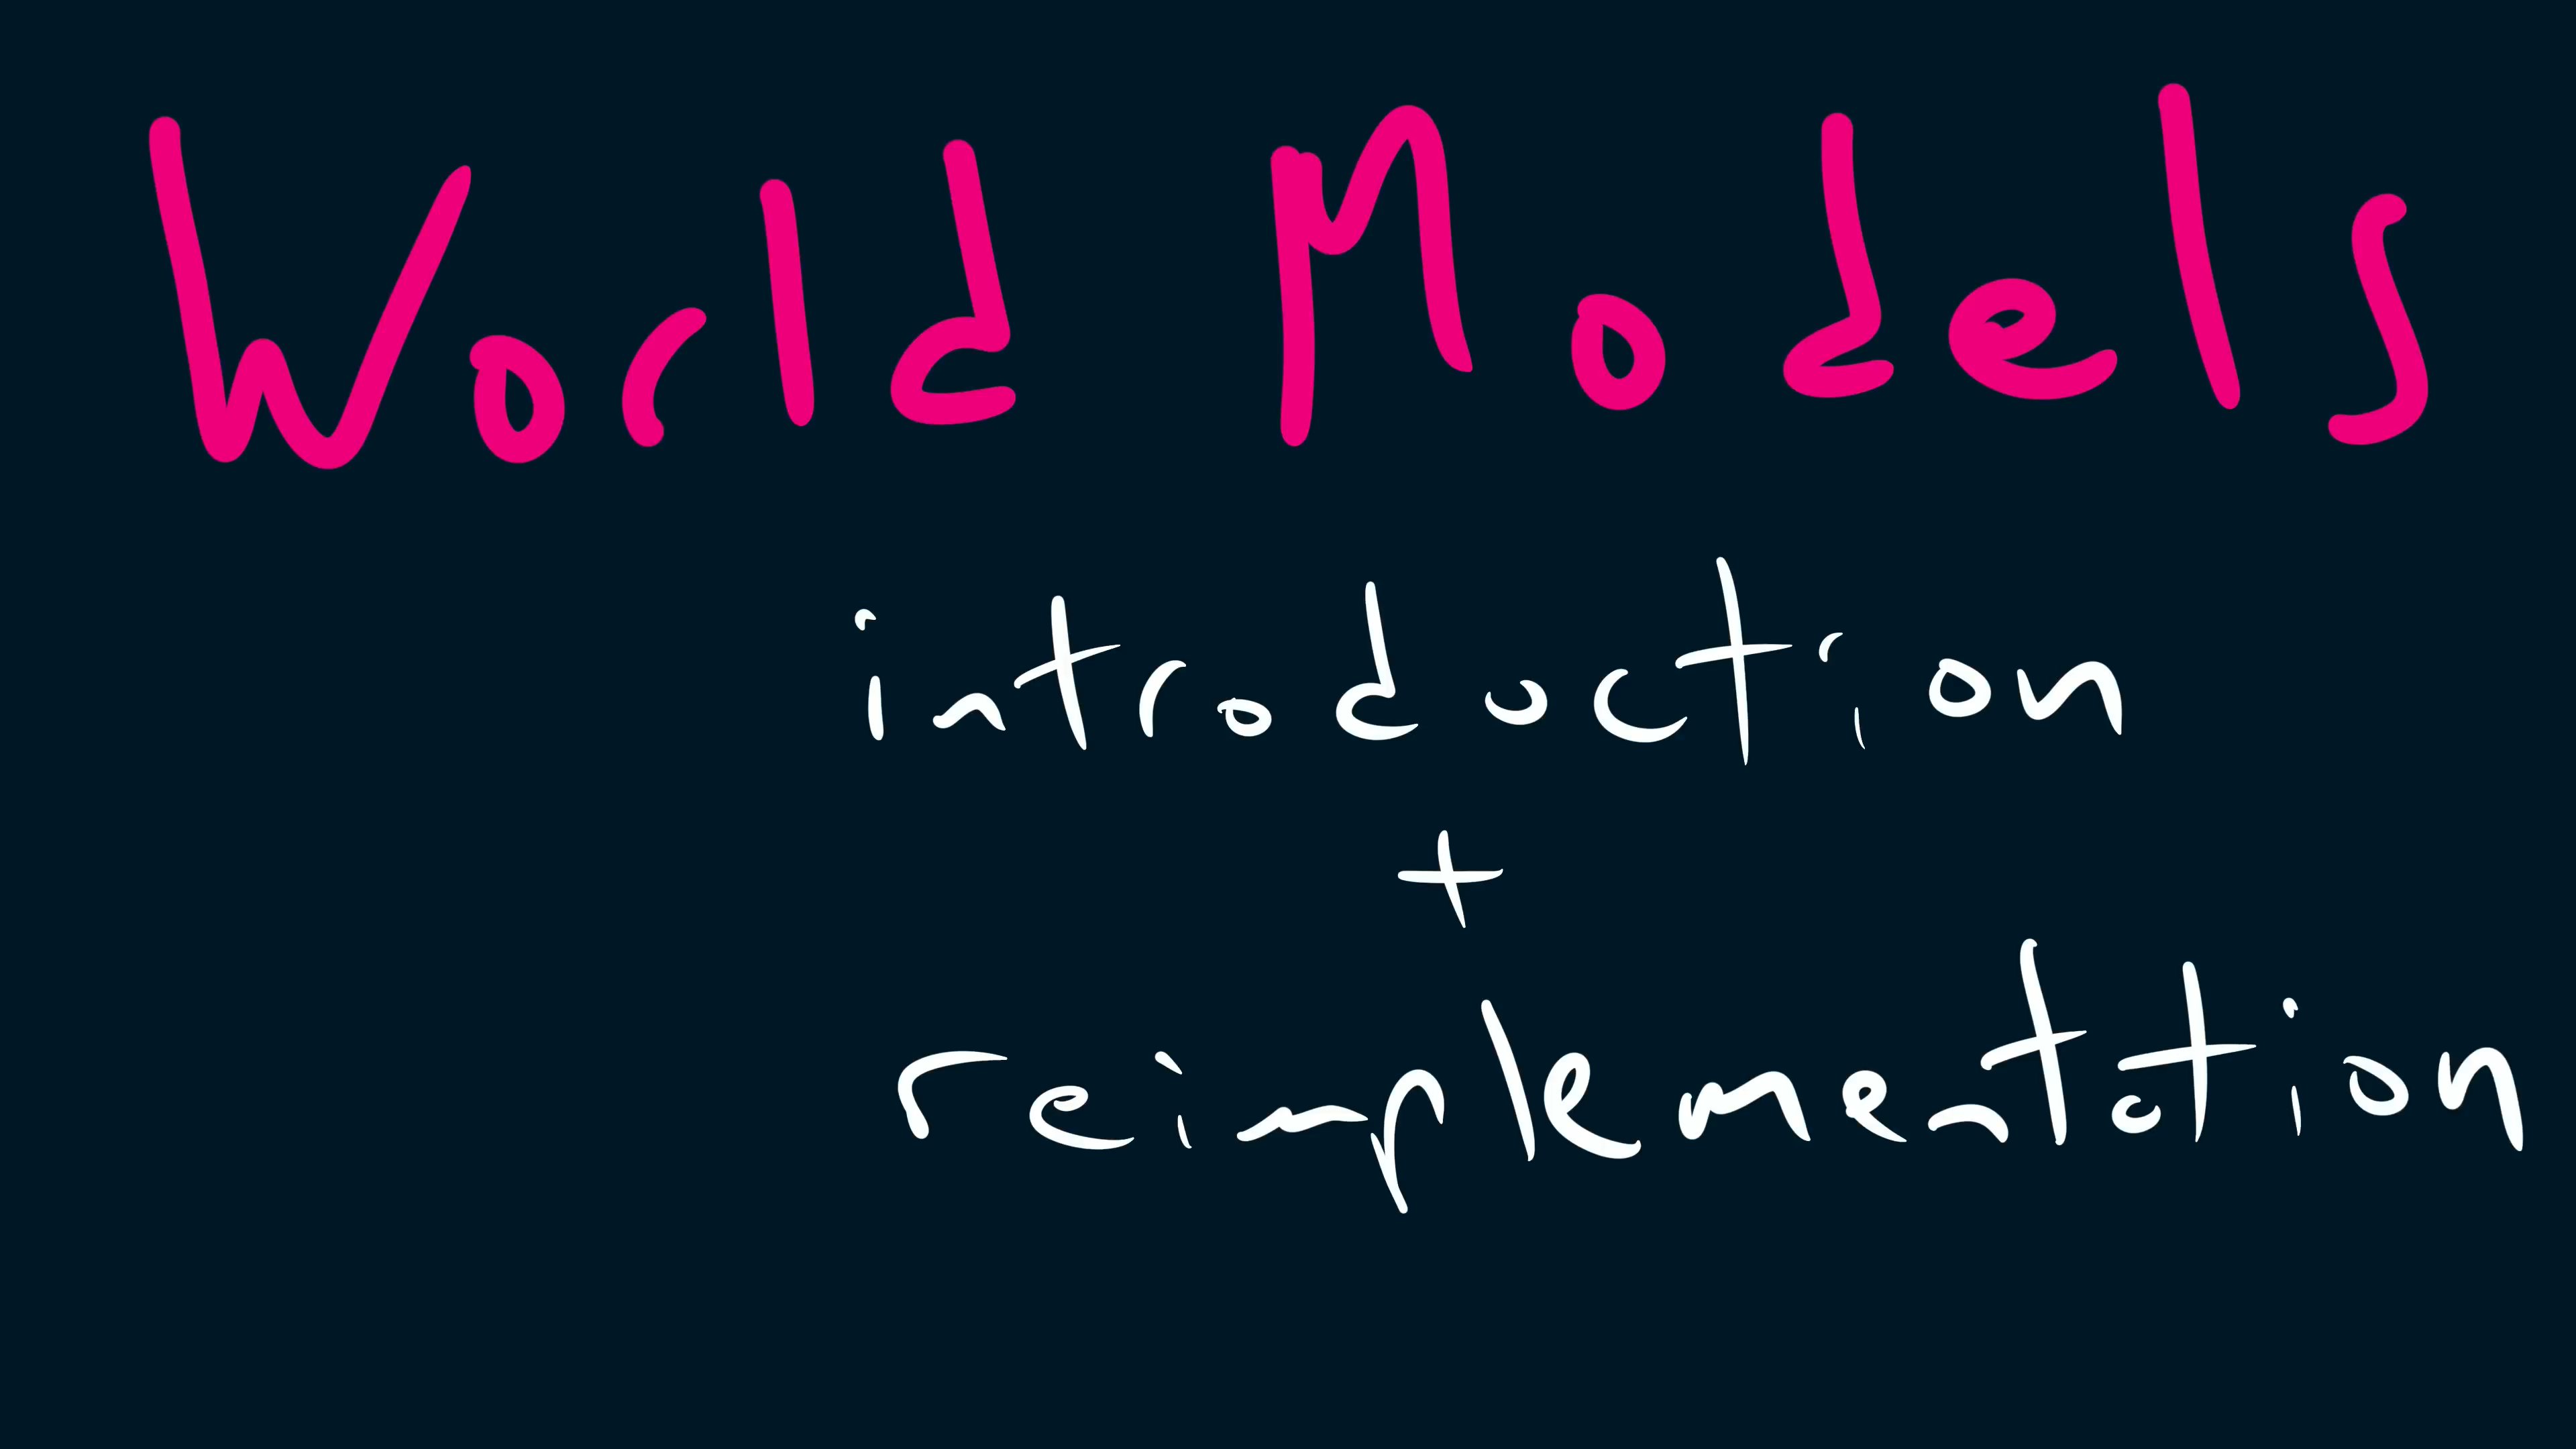 World Models
introduction
+
reimplementation